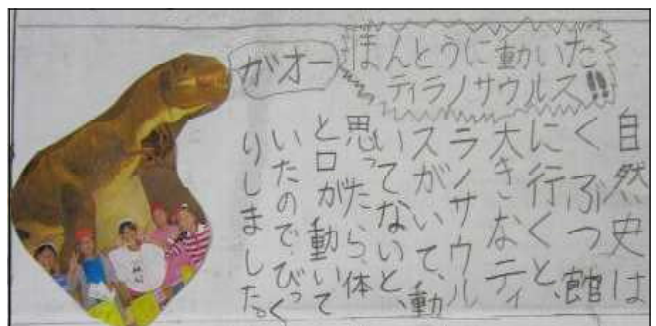 ほんとうに動いた
ティラノサウルス!!
がオー
自然史は
くぶつ館
に行くと、
大きなティ
ラノサウル
スがいて、動
いてないと、
思ったら、体
と口が動いて
いたのでびっく
りしました。